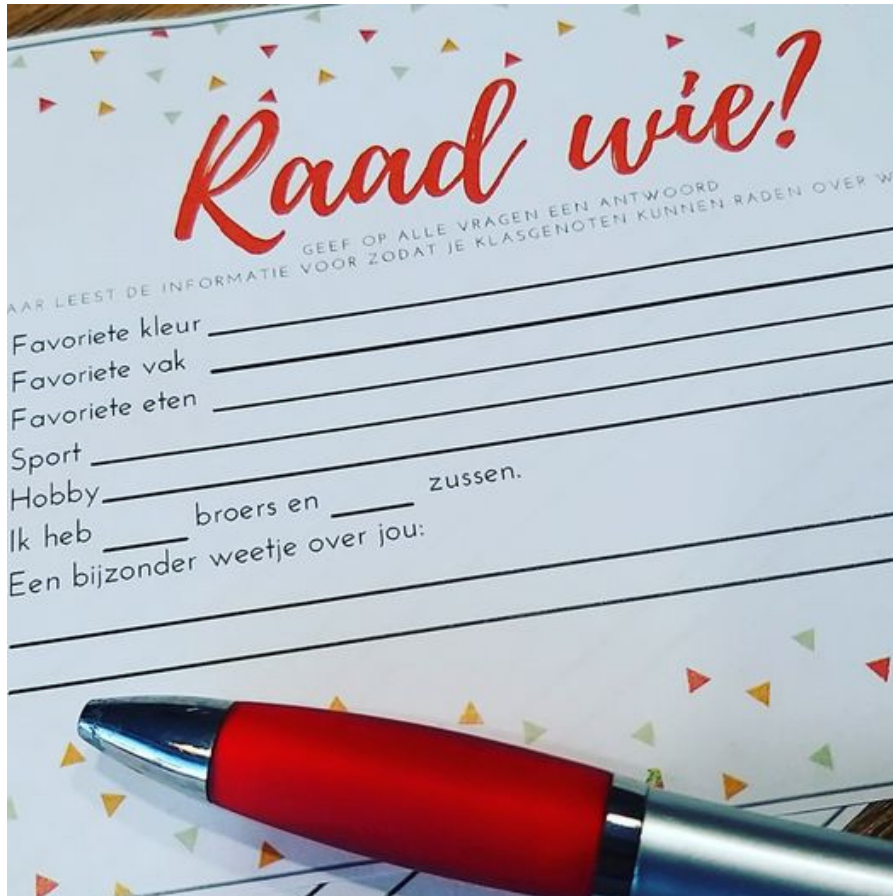 Raad wie?
GEEF OP ALLE VRAGEN EEN ANTWOORD
LEEST DE INFORMATIE VOOR ZODAT JE KLASGENOTEN KUNNEN RADEN OVER
Favoriete kleur
Favoriete vak
Favoriete eten
Sport
Hobby
Ik heb ____ broers en ____ zussen.
Een bijzonder weetje over jou: